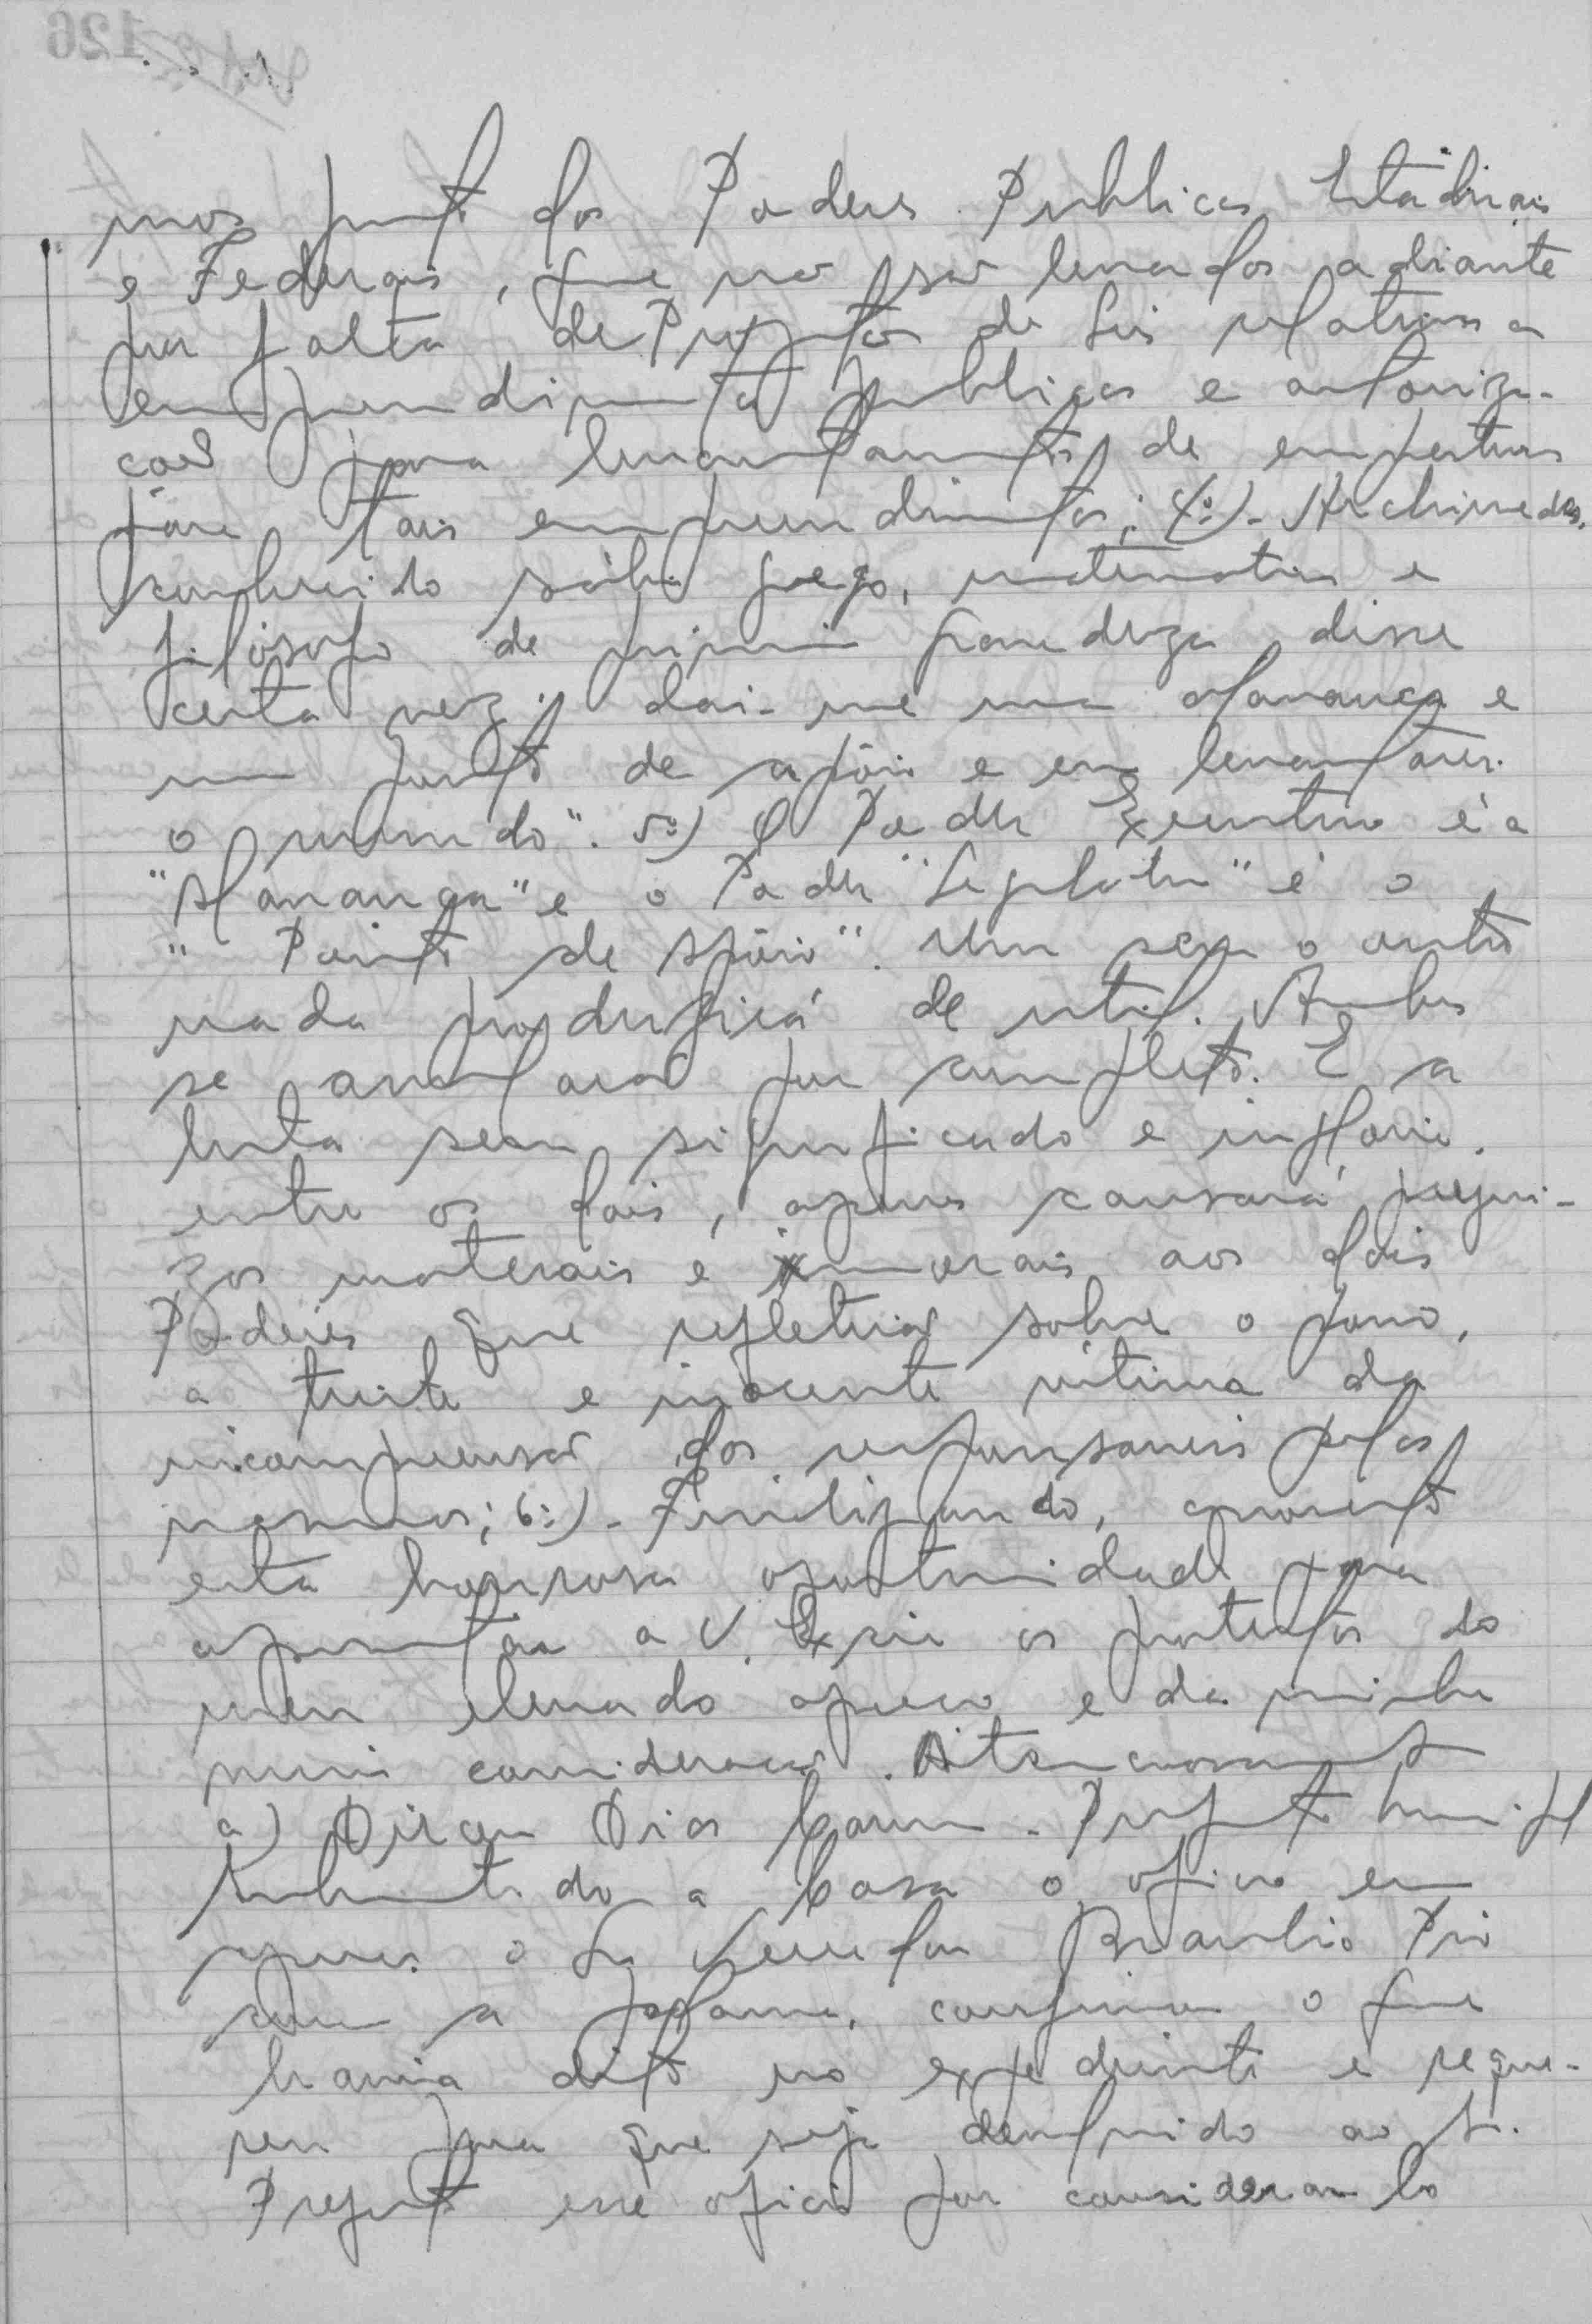 mos junto dos Poderes Publicos Estaduais
e Federais, que não são levados adiante
por falta de Projetos de Leis relativos a
empreendimentos publicos e autoriza-
ção para levantamentos de emprestimos
para tais empreendimentos; 4º)- Archimedes,
conhecido sábio grego, matematico e
filósofo de primeira grandeza disse
certa vez: dai-me uma alavanca e
um ponto de apôio e eu levantarei
o mundo". 5º) O Poder Executivo é a
"Alavanca" e o Poder "Legislativo" é o
"Ponto de Apôio". Um sem o outro
nada produzirá de util. Ambos
se anularão por completo. E a
luta sem significado e inglória
entre os dois, apenas causará prejui-
zos materiais e morais aos dois
Podêres que refletirão sobre o povo,
a triste e inocente vitima da
incompreensão dos responsaveis pelos
mesmos; 6º)- Finalizando, aproveito
esta honrosa oportunidade para
apresentar a V. Excia os protestos do
meu elevado apreço e da minha
mui consideração. Atenciosamente
a) Dirceu Dias Carn - Prefeito Munipl
Submetido a Casa o oficio em
o Sr Vereador Braulio Pio
com a palavra, confirmou o que
havia dito no expediente e reque-
reu para que seja devolvido ao Sr.
Prefeito esse oficio por considera-lo